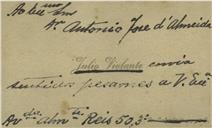 Ao Ex.mo Sr.
Dr. Antonio Jose d'Almeida
Julio Violante envia
sentidos pesames a V. Exª
Av. Almte. Reis 50, 3º